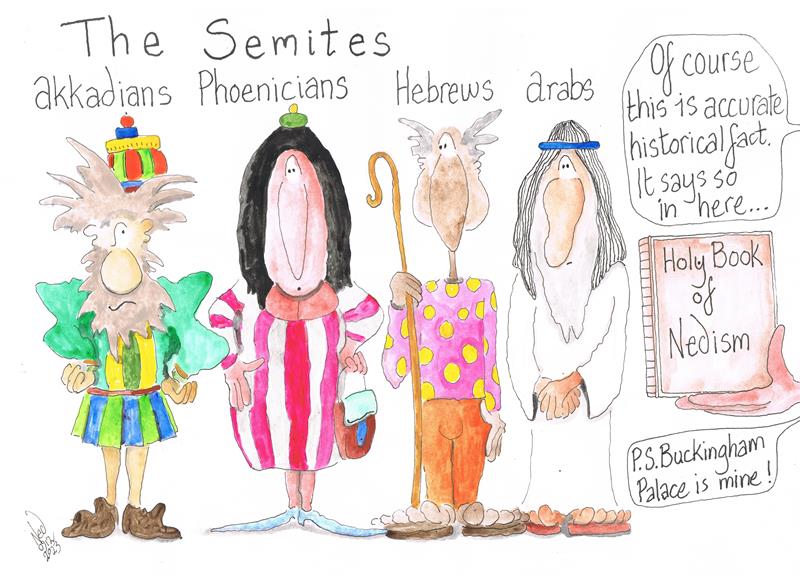 The Semites
akkadians Phoenicians Hebrews arabs
Of course
this is accurate
historical fact.
It says so
in here...
Holy Book
of
Nedism
P.S. Buckingham
Palace is mine!
2023